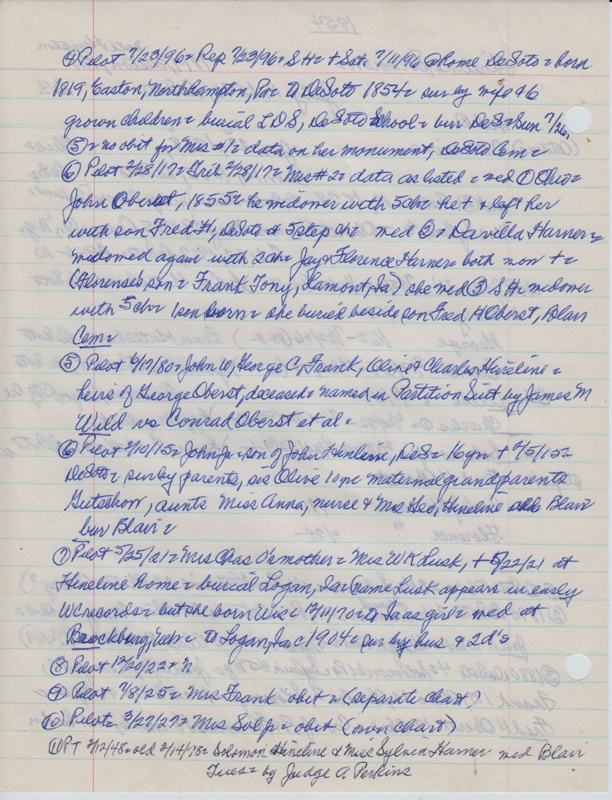 ④ Pilot 7/23/96 = Rep 7/23/96 = S H = + Sat 7/11/96 @ home DeSoto = born
1819, Easton, Northampton, Pa = to DeSoto 1854 = sur by wife & 6
grown children = burial L D S, DeSoto School = bur DeS = Sun 7/26,
⑤ = no obit for Mrs #1 = data on her monument, DeSoto Cem =
⑥ Pilot 2/28/17 = Trib 2/28/17 = Mrs #2 = data as listed = med ① Ohio =
John Oberst, 1855 = he widower with 5 ch = he + & left her
with son Fred H, DeSoto & 5 step ch = med ② = Davilla Harner =
widowed again with 2 ch = Jay & Florence Harner = both now + =
(Florence's son = Frank Tony, Lamont, Ia) she med ③ S H = widower
with 5 ch = 1 son born = she buried beside son Fred H Oberst, Blair
Cem =
⑤ Pilot 6/17/80 = John W, George C, Frank, Olive & Charles Hineline =
heirs of George Oberst, deceased = named in Partition Suit by James M
Wild vs Conrad Oberst et al =
⑥ Pilot 2/10/15 = John Jr = son of John Hineline, DeS = 16 yr = + 2/5/15 =
DeSoto = sur by parents, sis Olive 10 yr = maternal grandparents
Gutschow, aunts Miss Anna, nurse & Mrs Geo, Hineline Blair
bur Blair =
⑦ Pilot 5/25/21 = Mrs Chas O's mother = Mrs W K Lusk, + 5/22/21 at
Hineline home = burial Logan, Ia = name Lusk appears in early
W C records = but she born Wis = 12/11/70 = to Ia as girl = med at
= to Logan, Ia = 1904 = sur by hus & 2 d's
⑧ Pilot 12/20/22 = N
⑨ Pilot 7/8/25 = Mrs Frank obit = (separate Chart)
⑩ Pilot = 2/27/27 = Mrs Sol Jr = obit (own Chart)
⑪ PT 2/12/48 = old 2/14/78 = Solomon Hineline & Miss Sylvia Harner med Blair
Tues = by Judge A. Perkins